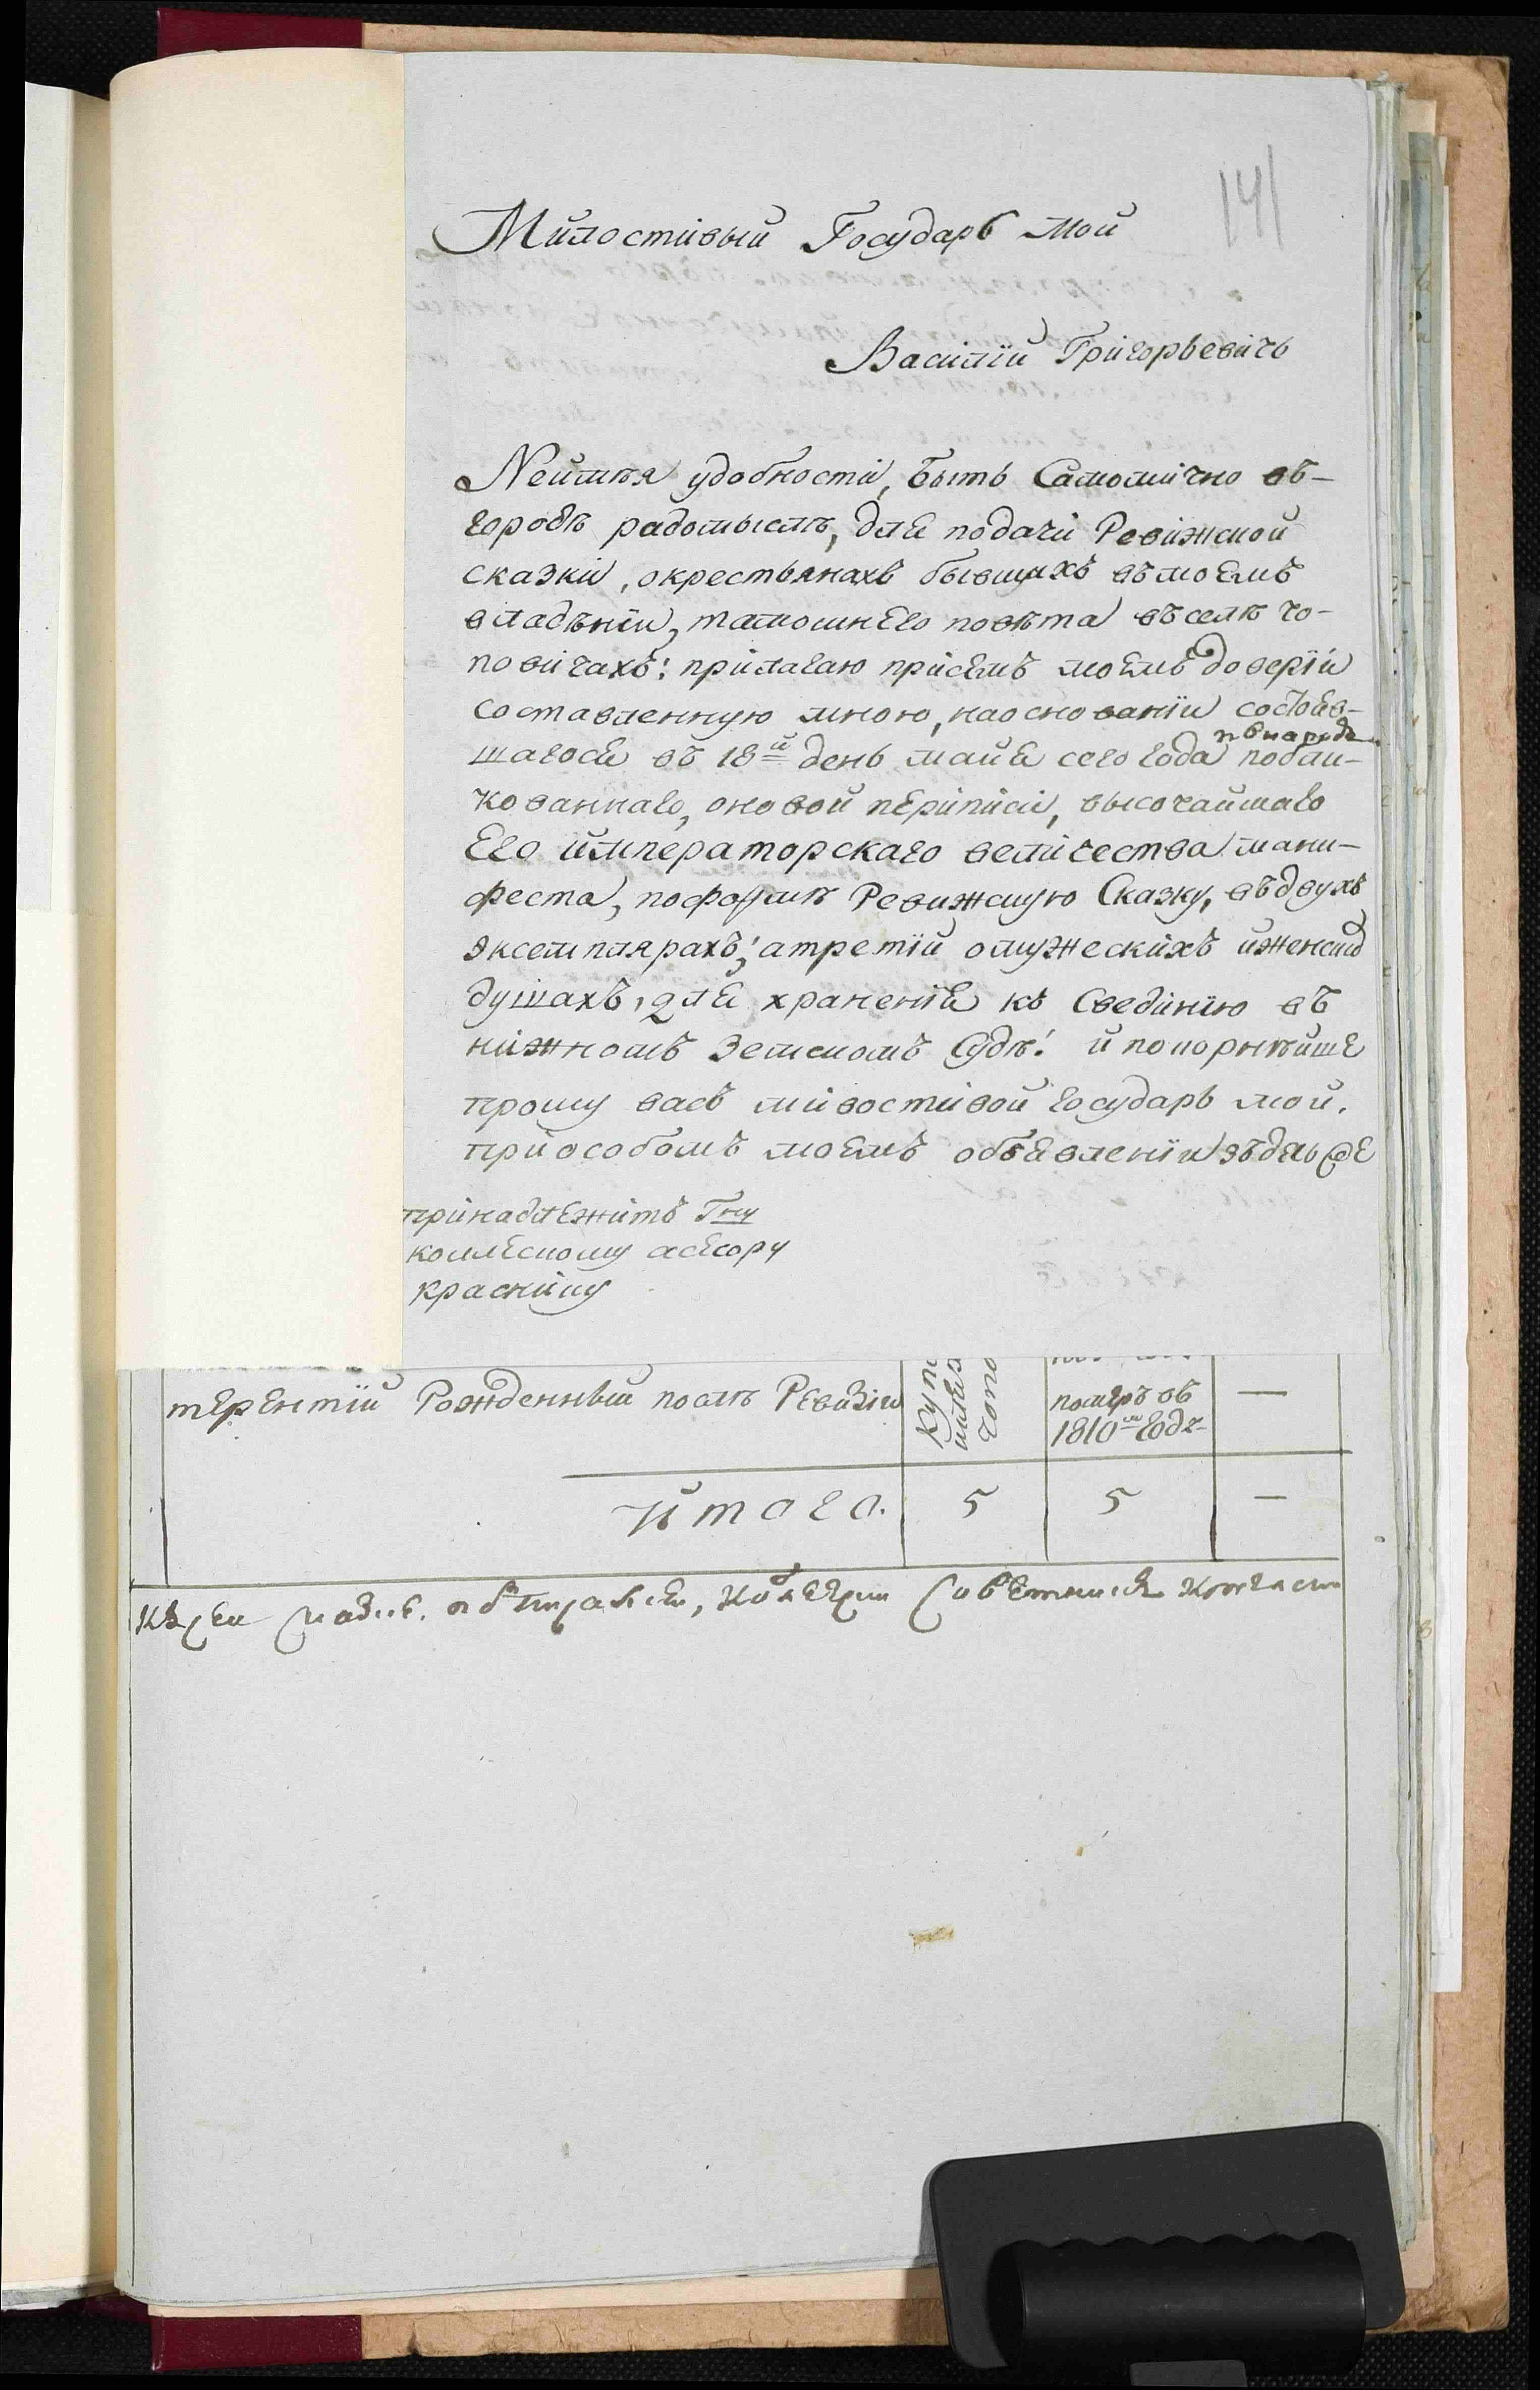 141
Милостивый Государь мой
Василій Григорьевичь
Неимѣя удобности, быть Самолично въ-
городѣ радомыслѣ, для подачи Ревижской
сказки, окрестьянахъ бывшихъ въмоемъ
владѣніи, тамошнего повѣта въселѣ чо-
повичахъ: прилагаю присемъ моемъ доверіи
составленную мною, наосновании состояв-
шагося въ 18й день майя сего года публи-
кованнаго, оновой переписи, высочайшаго
Его императорскаго величества мани-
феста, поформѣ Ревижскую Сказку, въдвухъ
эксемплярахъ; атретій омужескихъ иженск
душахъ, для храненія къ Свединію въ
нижномъ Земскомъ Судѣ! и покорнѣйше
прошу васъ мивостивой государь мой,
приособомъ моемъ объявленіи
принадлежитъ Гну
коллескому асесору
красницу
терентій Рожденный послѣ Ревизіи
померъ въ
1810м годе
—
итого.
5
5
—